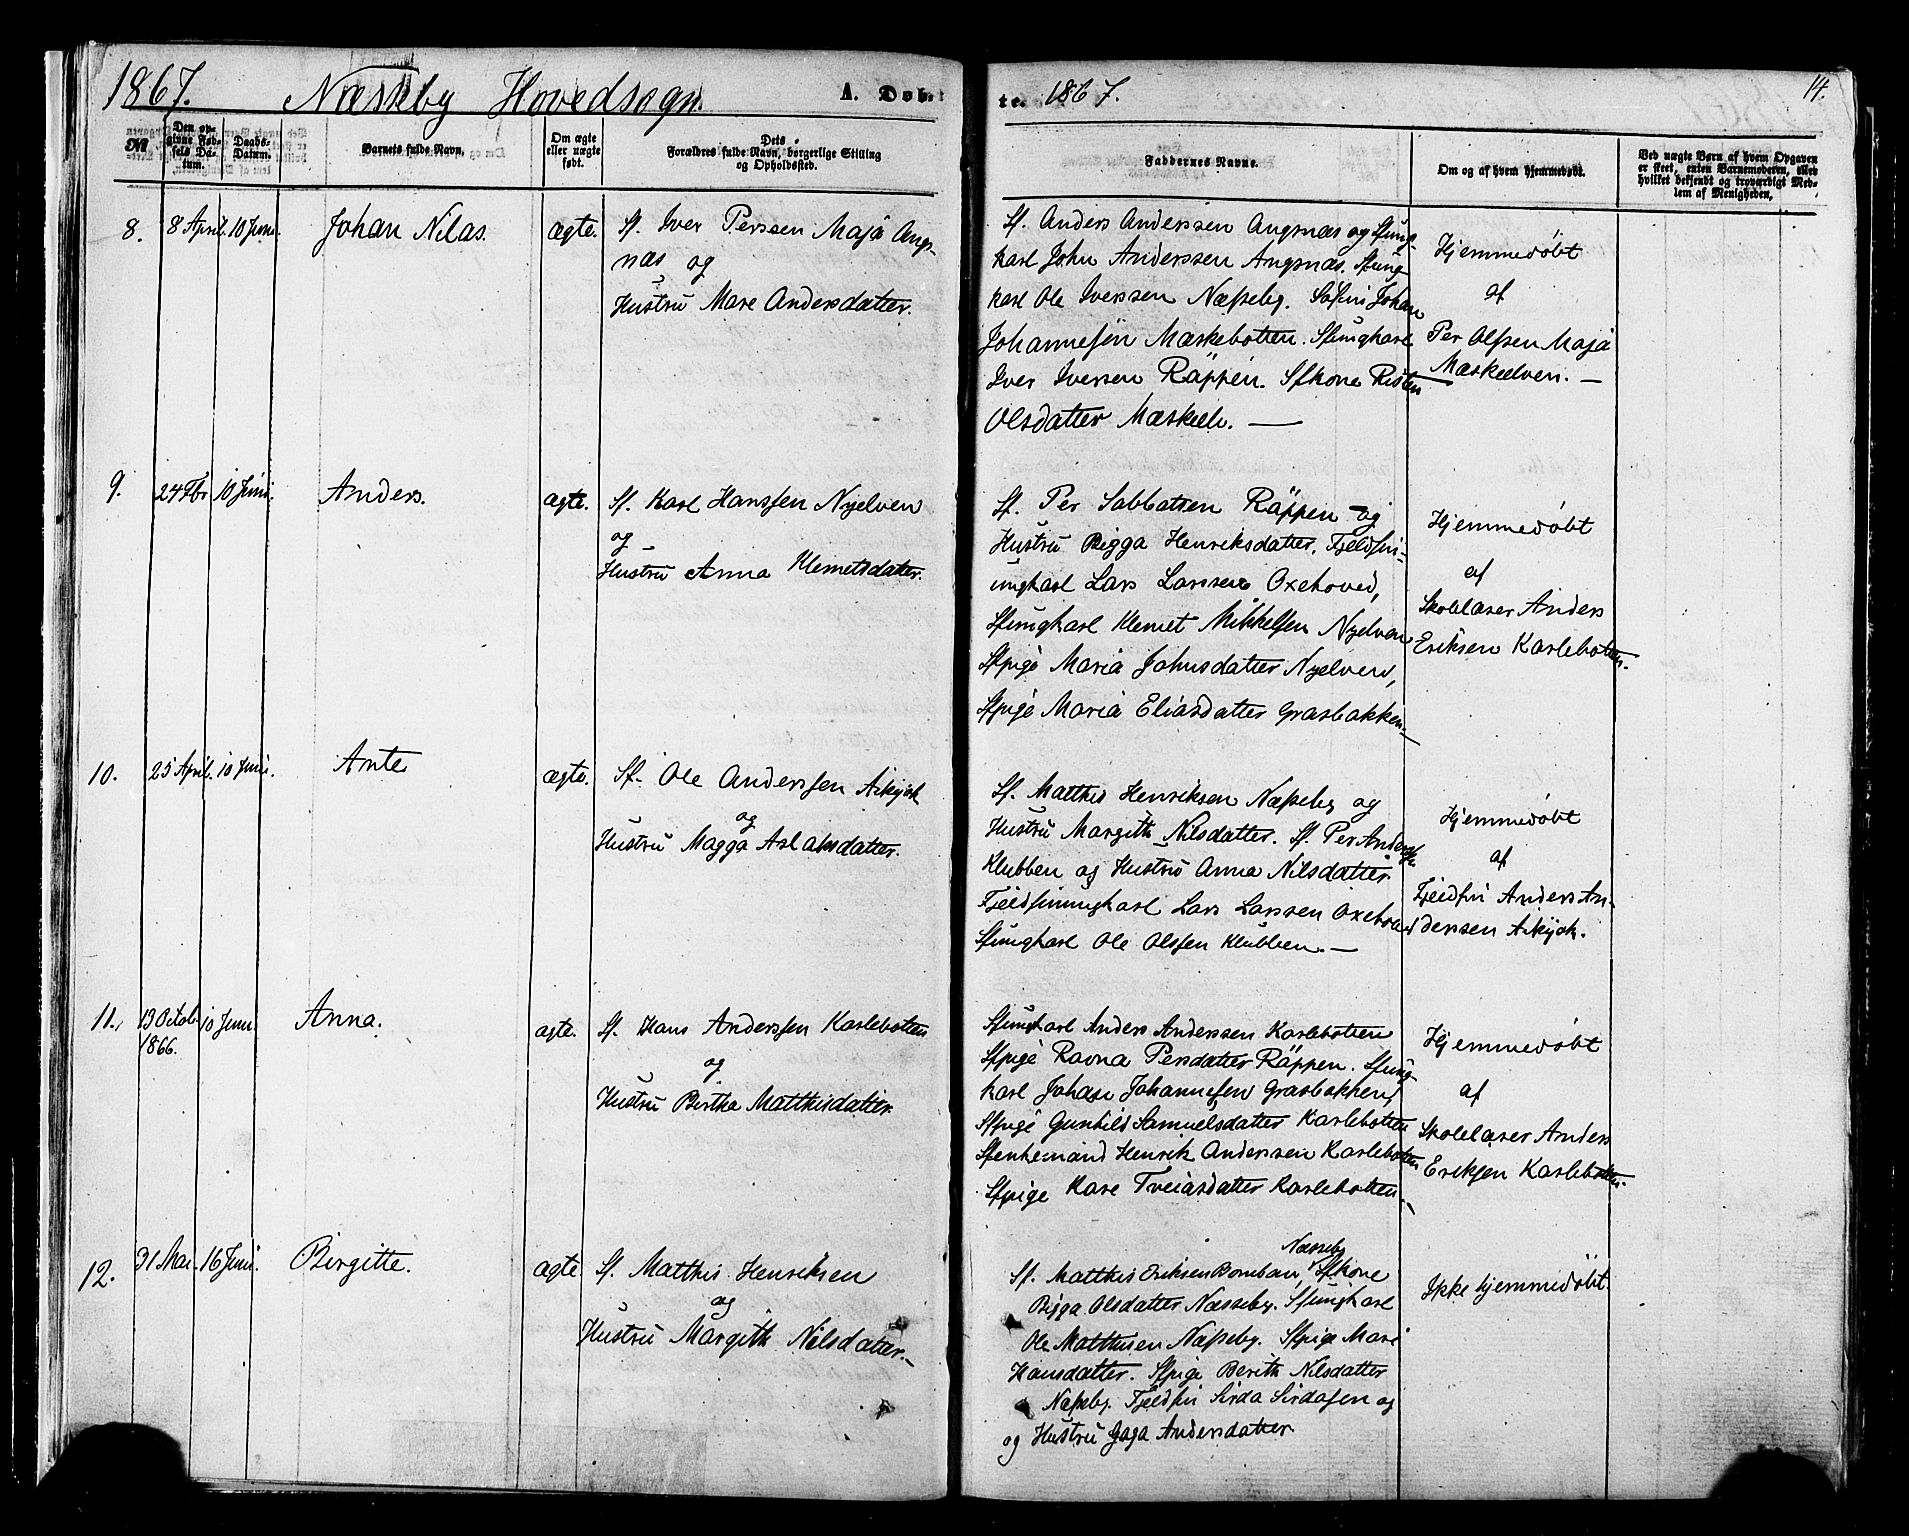 1867. Næsseby Hovedsogn. A. Døb-
te. 1867. 14.
No
Den op-
givne Fød-
sels Da-
tum.
Daabs-
Datum.
Barnets fulde Navn.
Om ægte
eller uægte
født.
Dets
Forældres fulde Navn, borgerlige Stilling
og Opholdssted.
Faddernes Navne.
Om og af hvem hjemmedøbt.
Ved uægte Børn af hvem Opgaven
er skeet, enten Barnemoderen, eller
hvilket bekjendt og troværdigt Med-
lem af Menigheden.
8. 8 April. 10 Juni. Johan Nilas. ægte.
Sf. Iver Perssen Maja Angs-
næs og
Hustru Mare Andersdatter.
Sf. Anders Anderssen Angsnæs og Sfung-
karl John Anderssen Angsnæs. Sfung-
karl Ole Iverssen Næsseby. Søfin Johan
Johannesen Mæskebotten. Sfungkarl
Iver Iversen Räppen. Sfkone Risten
Olsdatter Mæskelv. —
Hjemmedøbt
af
Per Olssen Maja
Mæskelven. —
9. 24 Fbr 10 Juni. Anders. ægte.
Sf. Karl Hanssen Nyelven
og
Hustru Anna Klemetsdatter.
Sf. Per Sabbasen Räppen og
Hustru Bigga Henriksdatter. Fjeldfin-
ungkarl Lars Larssen Oxehoved,
Sfungkarl Klemet Mikkelsen Nyelven
Sfpige Maria Johnsdatter Nyelven,
Sfpige Maria Eliasdatter Græsbakken.—
Hjemmedøbt
af
Skolelærer Anders
Eriksen Karlebotten.
10. 25 April. 10 Juni. Ante ægte.
Sf. Ole Anderssen Askjok
og
Hustru Magga Aslaksdatter.
Sf. Matthis Henriksen Næsseby og
Hustru Margith Nilsdatter. Sf. Per Anders.
Klubben og Hustru Anna Nilsdatter
Fjeldfinungkarl Lars Larssen Oxehoved
Sfungkarl Ole Olssen Klubben. —
Hjemmedøbt
af
Fjeldfin Anders An-
dersen Askjok.
11. 13 Octob. 10 Juni. Anna. ægte.
1866.
Sf. Hans Anderssen Karlebotten
og
Hustru Birtha Matthisdatter.
Sfungkarl Anders Anderssen Karlebotten
Sfpige Ravna Persdatter Räppen. Sfung-
karl Johan Johannesen Græsbakken,
Sfpige Gunhild Samuelsdatter Karlebotten
Sfenkemand Henrik Anderssen Karlebotten
Sfpige Kare Tveiasdatter Karlebotten.—
Hjemmedøbt
af
Skolelærer Anders
Eriksen Karlebotten.
12. 31 Mai. 16 Juni. Birgitte. ægte
Sf. Matthis Henriksen
og
Hustru Margith Nilsdatter.—
Næsseby
Sf. Matthis Eriksen Bomban, Sfkone
Bigga Olsdatter Næsseby. Sfungkarl
Ole Matthisen Næsseby. Sfpige Mari
Hansdatter. Sfpige Berith Nilsdatter
Næsseby. Fjeldfin Sirda Sirdasen og
og Hustru Gaga Andersdatter.
Ikke hjemmedøbt.